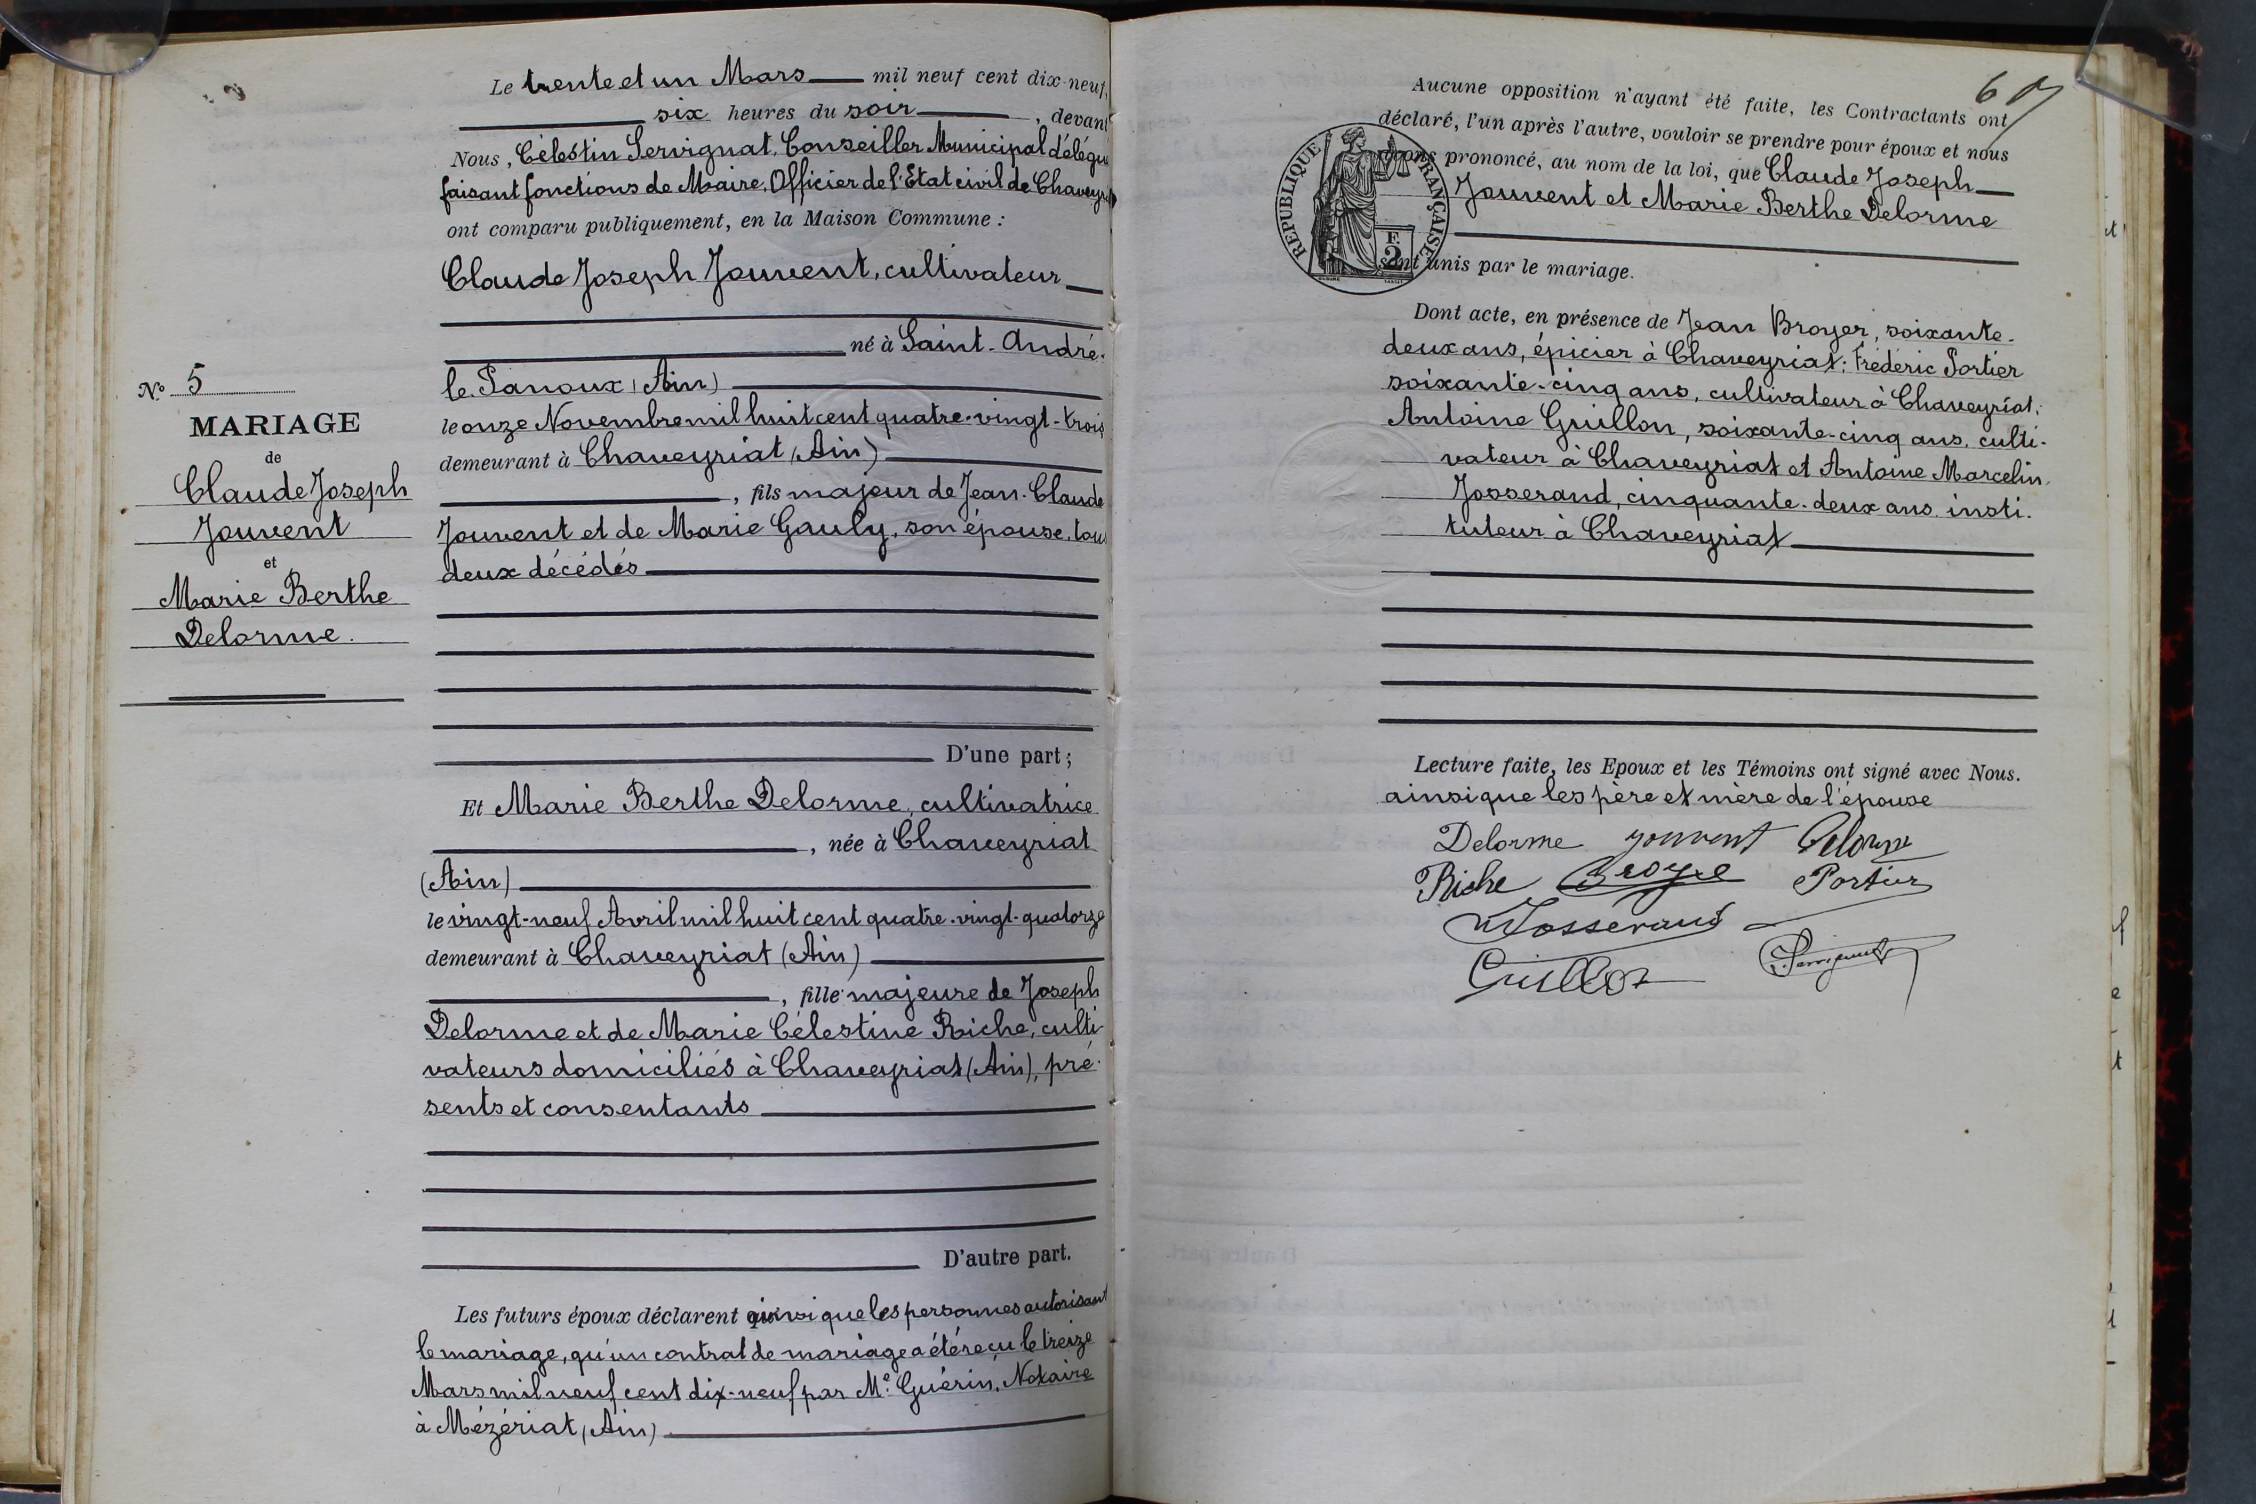 Le trente et un Mars mil neuf cent dix-neuf,
six heures du soir, devant
Nous, Célestin Servignat, Conseiller Municipal délégu
faisant fonctions de Maire, Officier de l'Etat civil de Chaveyr
ont comparu publiquement, en la Maison Commune :
Claude Joseph Jouvent, cultivateur
né à Saint-André-
le-Panoux (Ain)
le onze Novembre mil huit cent quatre-vingt-trois
demeurant à Chaveyriat (Ain)
, fils majeur de Jean-Claude
Jouvent et de Marie Gauly, son épouse, tou
deux décédés
D'une part ;
Et Marie Berthe Delorme, cultivatrice
, née à Chaveyriat
(Ain)
le vingt-neuf Avril mil huit cent quatre-vingt-quatorze
demeurant à Chaveyriat (Ain)
, fille majeure de Joseph
Delorme et de Marie Célestine Riche, culti-
vateurs domiciliés à Chaveyriat (Ain), pré-
sents et consentants
D'autre part.
Les futurs époux déclarent ainsi que les personnes autorisant
le mariage, qu'un contrat de mariage a été reçu le treize
Mars mil neuf cent dix-neuf par Me. Guérin, Notaire
à Mézériat (Ain)
No 5
MARIAGE
de
Claude Joseph
Jouvent
et
Marie Berthe
Delorme.
Aucune opposition n'ayant été faite, les Contractants ont
déclaré, l'un après l'autre, vouloir se prendre pour époux et nous
avons prononcé, au nom de la loi, que Claude Joseph
Jouvent et Marie Berthe Delorme
sont unis par le mariage.
RÉPUBLIQUE FRANÇAISE
F.
2
Dont acte, en présence de Jean Broyer, soixante-
deux ans, épicier à Chaveyriat; Frédéric Portier
soixante-cinq ans, cultivateur à Chaveyriat;
Antoine Guillon, soixante-cinq ans, culti-
vateur à Chaveyriat et Antoine Marcelin
Josserand, cinquante-deux ans, insti-
tuteur à Chaveyriat
Lecture faite, les Epoux et les Témoins ont signé avec Nous.
ainsi que les père et mère de l'épouse
Delorme Jouvent Delorme
Riche Broyer Portier
Josserand
Guillon Servignat